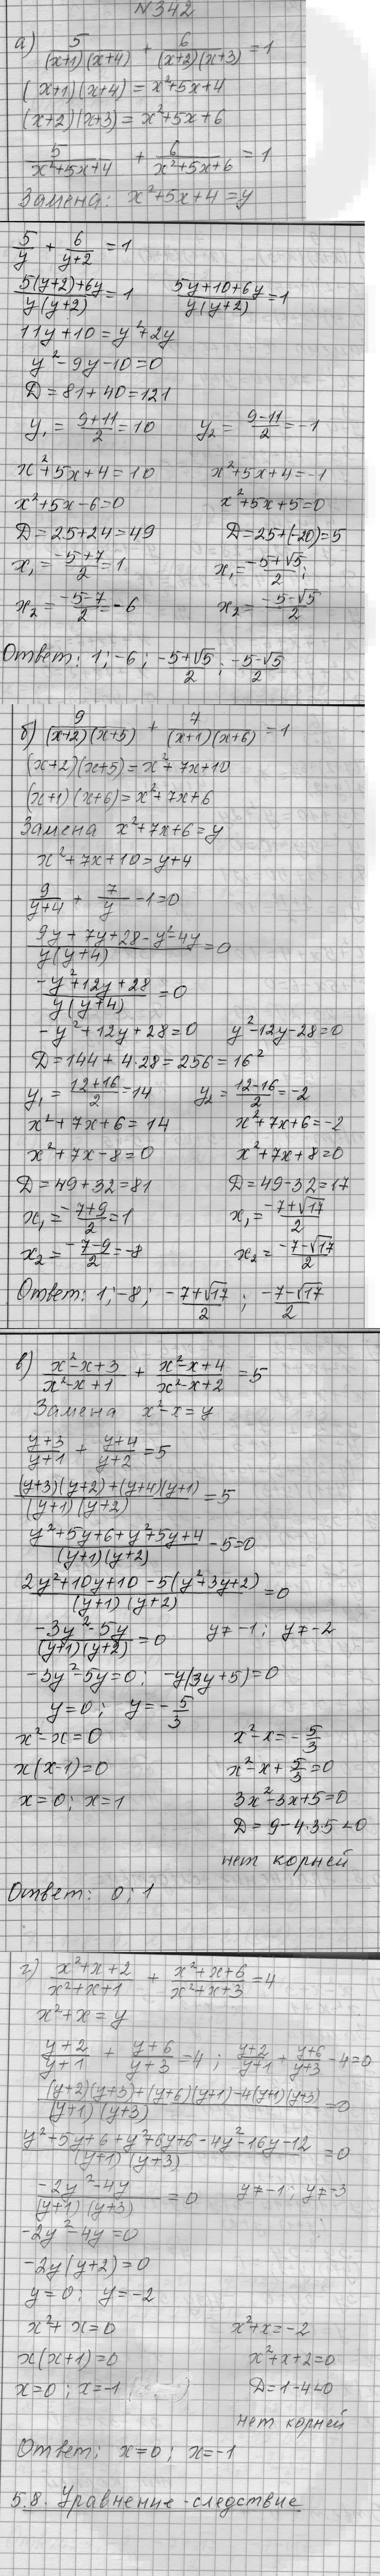 N 342
а) 5/((x+1)(x+4)) + 6/((x+2)(x+3)) = 1
(x+1)(x+4) = x²+5x+4
(x+2)(x+3) = x²+5x+6
5/(x²+5x+4) + 6/(x²+5x+6) = 1
Замена: x²+5x+4 = y
5/y + 6/(y+2) = 1
(5(y+2)+6y)/(y(y+2)) = 1    (5y+10+6y)/(y(y+2)) = 1
11y+10 = y²+2y
y²-9y-10=0
D = 81+40=121
y₁ = (9+11)/2 = 10    y₂ = (9-11)/2 = -1
x²+5x+4=10    x²+5x+4=-1
x²+5x-6=0    x²+5x+5=0
D=25+24=49    D=25+(-20)=5
x₁=(-5+7)/2=1    x₁=(-5+√5)/2;
x₂=(-5-7)/2=-6    x₂=(-5-√5)/2
Ответ: 1; -6; (-5+√5)/2; (-5-√5)/2
б) 9/((x+2)(x+5)) + 7/((x+1)(x+6)) = 1
(x+2)(x+5)=x²+7x+10
(x+1)(x+6)=x²+7x+6
Замена x²+7x+6=y
x²+7x+10=y+4
9/(y+4) + 7/y -1=0
(9y+7y+28-y²-4y)/(y(y+4)) = 0
(-y²+12y+28)/(y(y+4)) = 0
-y²+12y+28=0    y²-12y-28=0
D=144+4·28=256=16²
y₁=(12+16)/2=14    y₂=(12-16)/2=-2
x²+7x+6=14    x²+7x+6=-2
x²+7x-8=0    x²+7x+8=0
D=49+32=81    D=49-32=17
x₁=(-7+9)/2=1    x₁=(-7+√17)/2
x₂=(-7-9)/2=-8    x₂=(-7-√17)/2
Ответ: 1; -8; (-7+√17)/2; (-7-√17)/2
в) (x²-x+3)/(x²-x+1) + (x²-x+4)/(x²-x+2) = 5
Замена x²-x=y
(y+3)/(y+1) + (y+4)/(y+2) = 5
((y+3)(y+2)+(y+4)(y+1))/((y+1)(y+2)) = 5
(y²+5y+6+y²+5y+4)/((y+1)(y+2)) -5=0
(2y²+10y+10-5(y²+3y+2))/((y+1)(y+2)) = 0
(-3y²-5y)/((y+1)(y+2)) = 0    y≠-1; y≠-2
-3y²-5y=0; -y(3y+5)=0
y=0; y=-5/3
x²-x=0    x²-x=-5/3
x(x-1)=0    x²-x+5/3=0
x=0; x=1    3x²-3x+5=0
D=9-4·3·5<0
нет корней
Ответ: 0; 1
г) (x²+x+2)/(x²+x+1) + (x²+x+6)/(x²+x+3) = 4
x²+x=y
(y+2)/(y+1) + (y+6)/(y+3) = 4; (y+2)/(y+1) + (y+6)/(y+3) -4=0
((y+2)(y+3)+(y+6)(y+1)-4(y+1)(y+3))/((y+1)(y+3)) = 0
(y²+5y+6+y²+6y+6-4y²-16y-12)/((y+1)(y+3)) = 0
(-2y²-4y)/((y+1)(y+3)) = 0    y≠-1; y≠-3
-2y²-4y=0
-2y(y+2)=0
y=0; y=-2
x²+x=0    x²+x=-2
x(x+1)=0    x²+x+2=0
x=0; x=-1    D=1-4<0
нет корней
Ответ: x=0; x=-1
5.8. Уравнение-следствие